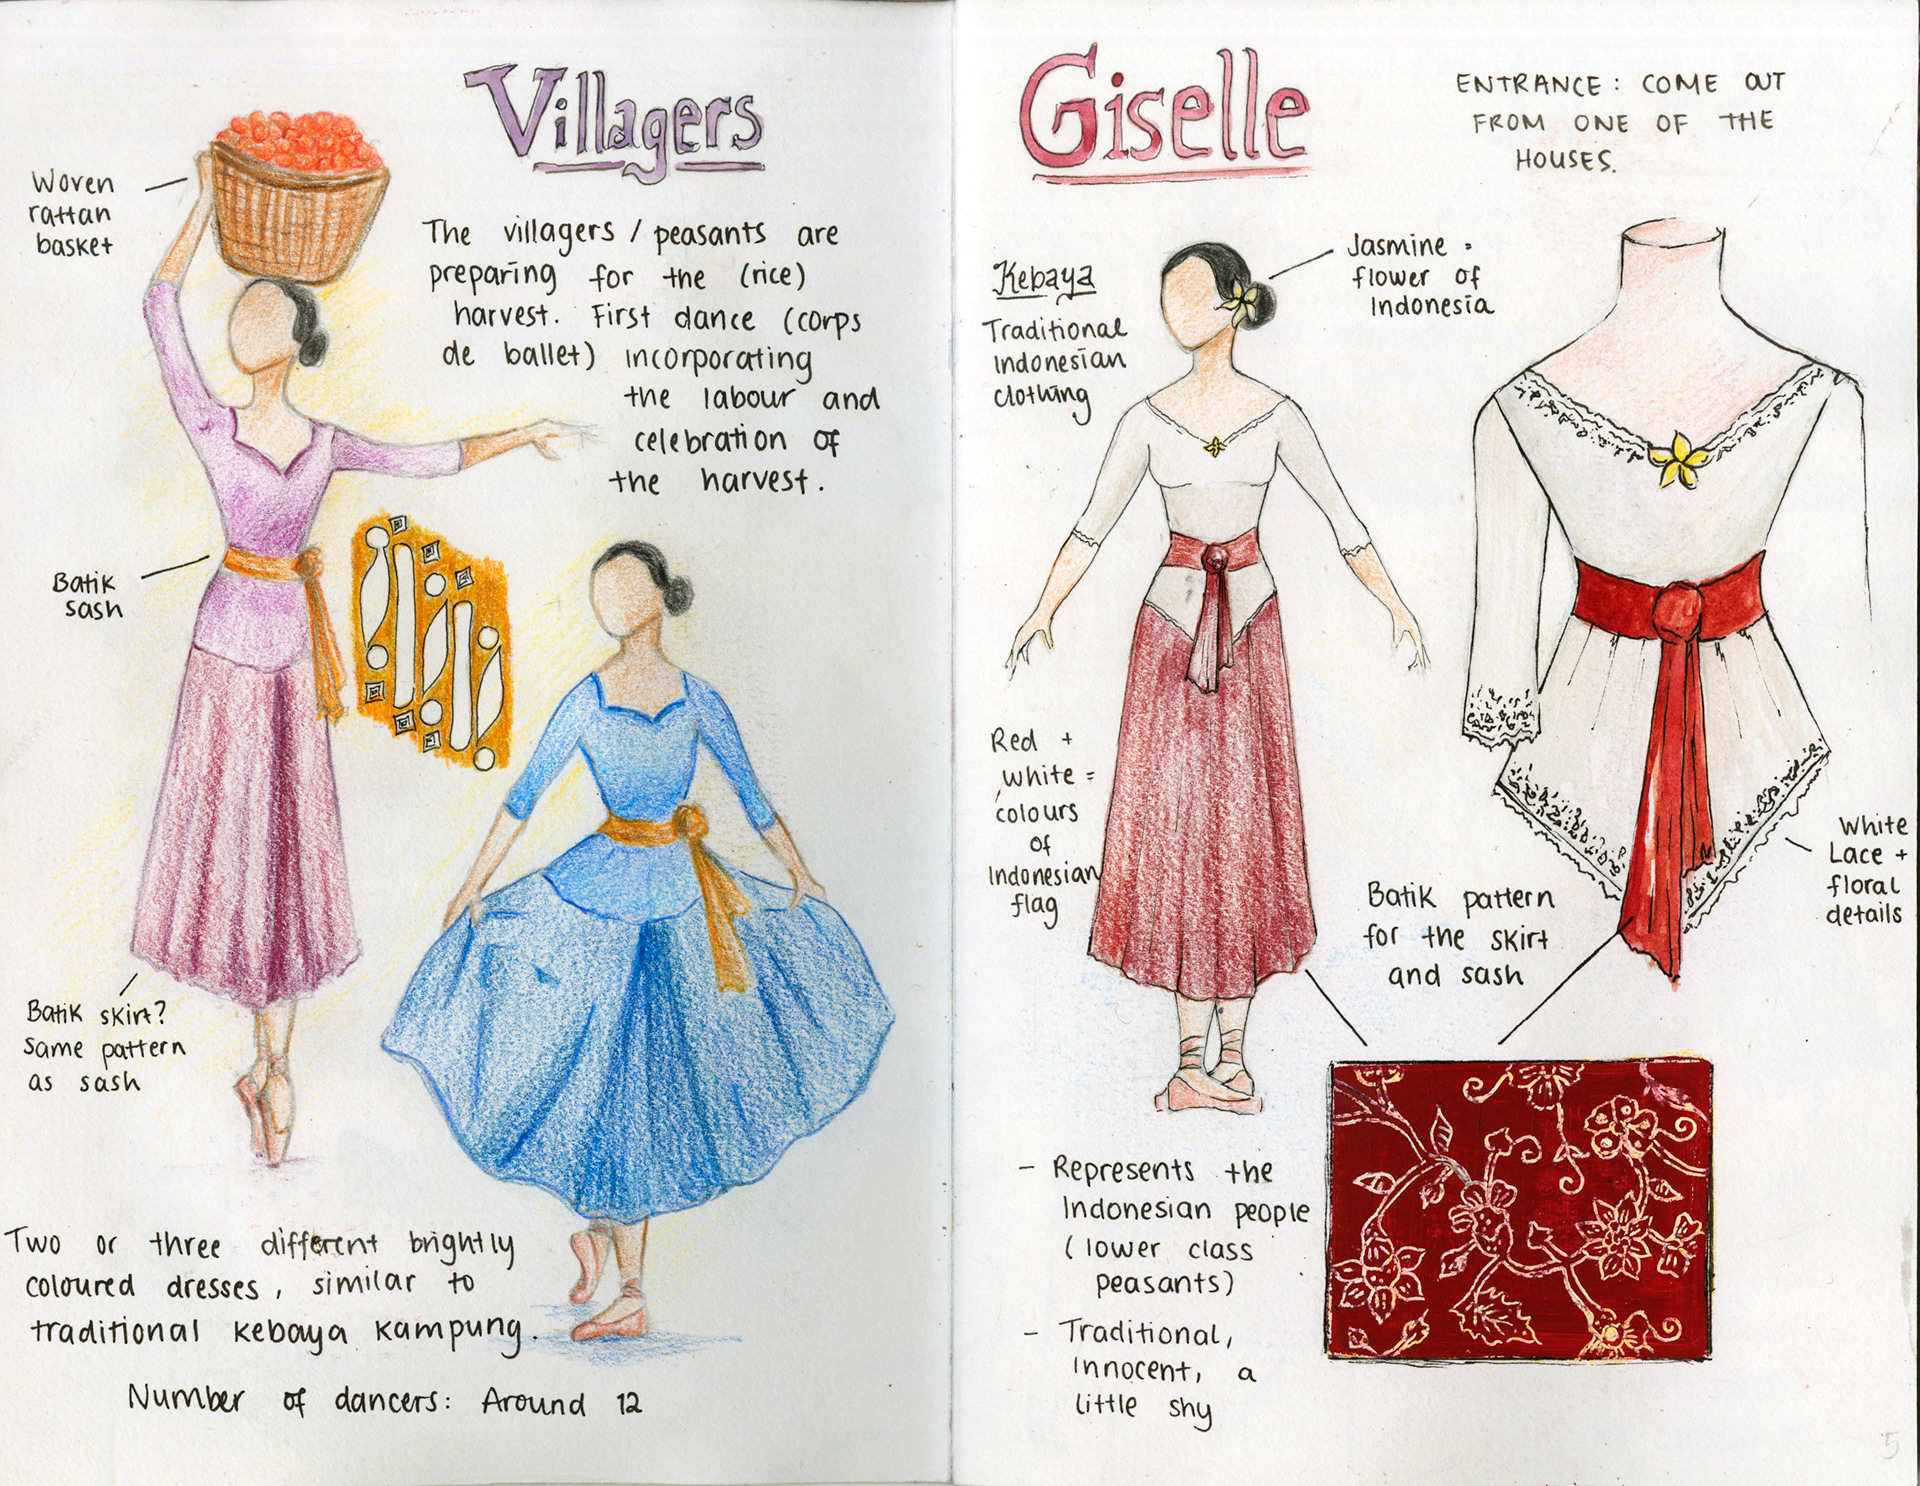 Villagers
Woven
rattan
basket
The villagers / peasants are
preparing for the (rice)
harvest. First dance (corps
de ballet) incorporating
the labour and
celebration of
the harvest.
Batik
sash
Batik skirt?
same pattern
as sash
Two or three different brightly
coloured dresses, similar to
traditional kebaya kampung.
Number of dancers: Around 12
Giselle
ENTRANCE: COME OUT
FROM ONE OF THE
HOUSES.
Kebaya
Traditional
Indonesian
clothing
Jasmine =
flower of
Indonesia
Red +
white =
colours
of
Indonesian
flag
White
Lace +
floral
details
Batik pattern
for the skirt
and sash
- Represents the
Indonesian people
(lower class
peasants)
- Traditional,
innocent, a
little shy
5